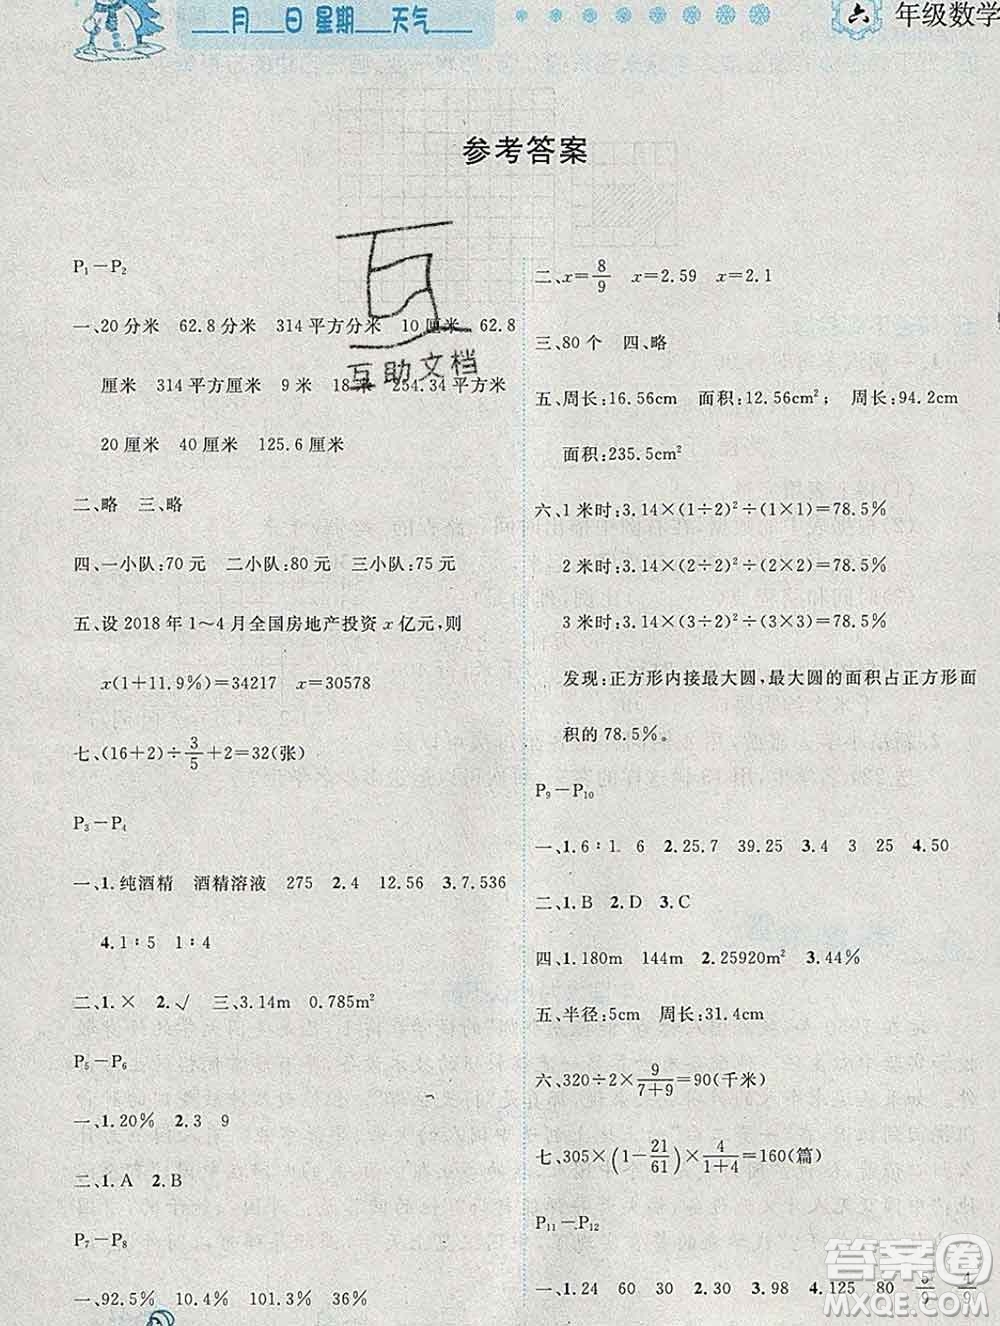 月 日 星期 天气
六 年级数学
参考答案
P₁－P₂
一、20分米 62.8分米 314平方分米 10厘米 62.8
厘米 314平方厘米 9米 18米 254.34平方米
20厘米 40厘米 125.6厘米
二、略 三、略
四、一小队:70元 二小队:80元 三小队:75元
五、设2018年1～4月全国房地产投资x亿元,则
x(1+11.9%)=34217 x=30578
七、(16+2)÷3/5+2=32(张)
P₃－P₄
一、1.纯酒精 酒精溶液 275 2.4 12.56 3.7.536
4.1∶5 1∶4
二、1.× 2.√ 三、3.14m 0.785m²
P₅－P₆
一、1.20% 2.3 9
二、1.A 2.B
P₇－P₈
一、92.5% 97.4% 101.3% 36%
二、x=8/9 x=2.59 x=2.1
三、80个 四、略
五、周长:16.56cm 面积:12.56cm²; 周长:94.2cm
面积:235.5cm²
六、1米时:3.14×(1÷2)²÷(1×1)=78.5%
2米时:3.14×(2÷2)²÷(2×2)=78.5%
3米时:3.14×(3÷2)²÷(3×3)=78.5%
发现:正方形内接最大圆,最大圆的面积占正方形面
积的78.5%。
P₉－P₁₀
一、1.6∶1 6 2.25.7 39.25 3.3 25 4.50
二、1.B 2.D 3.C
四、1.180m 144m 2.25920m² 3.44%
五、半径:5cm 周长:31.4cm
六、320÷2×9/(7+9)=90(千米)
七、305×(1－21/61)×4/(1+4)=160(篇)
P₁₁－P₁₂
一、1.24 60 30 2.20 3.12 4.125 80 5/9 4/9
互助文档
答案圈
MXQE.COM